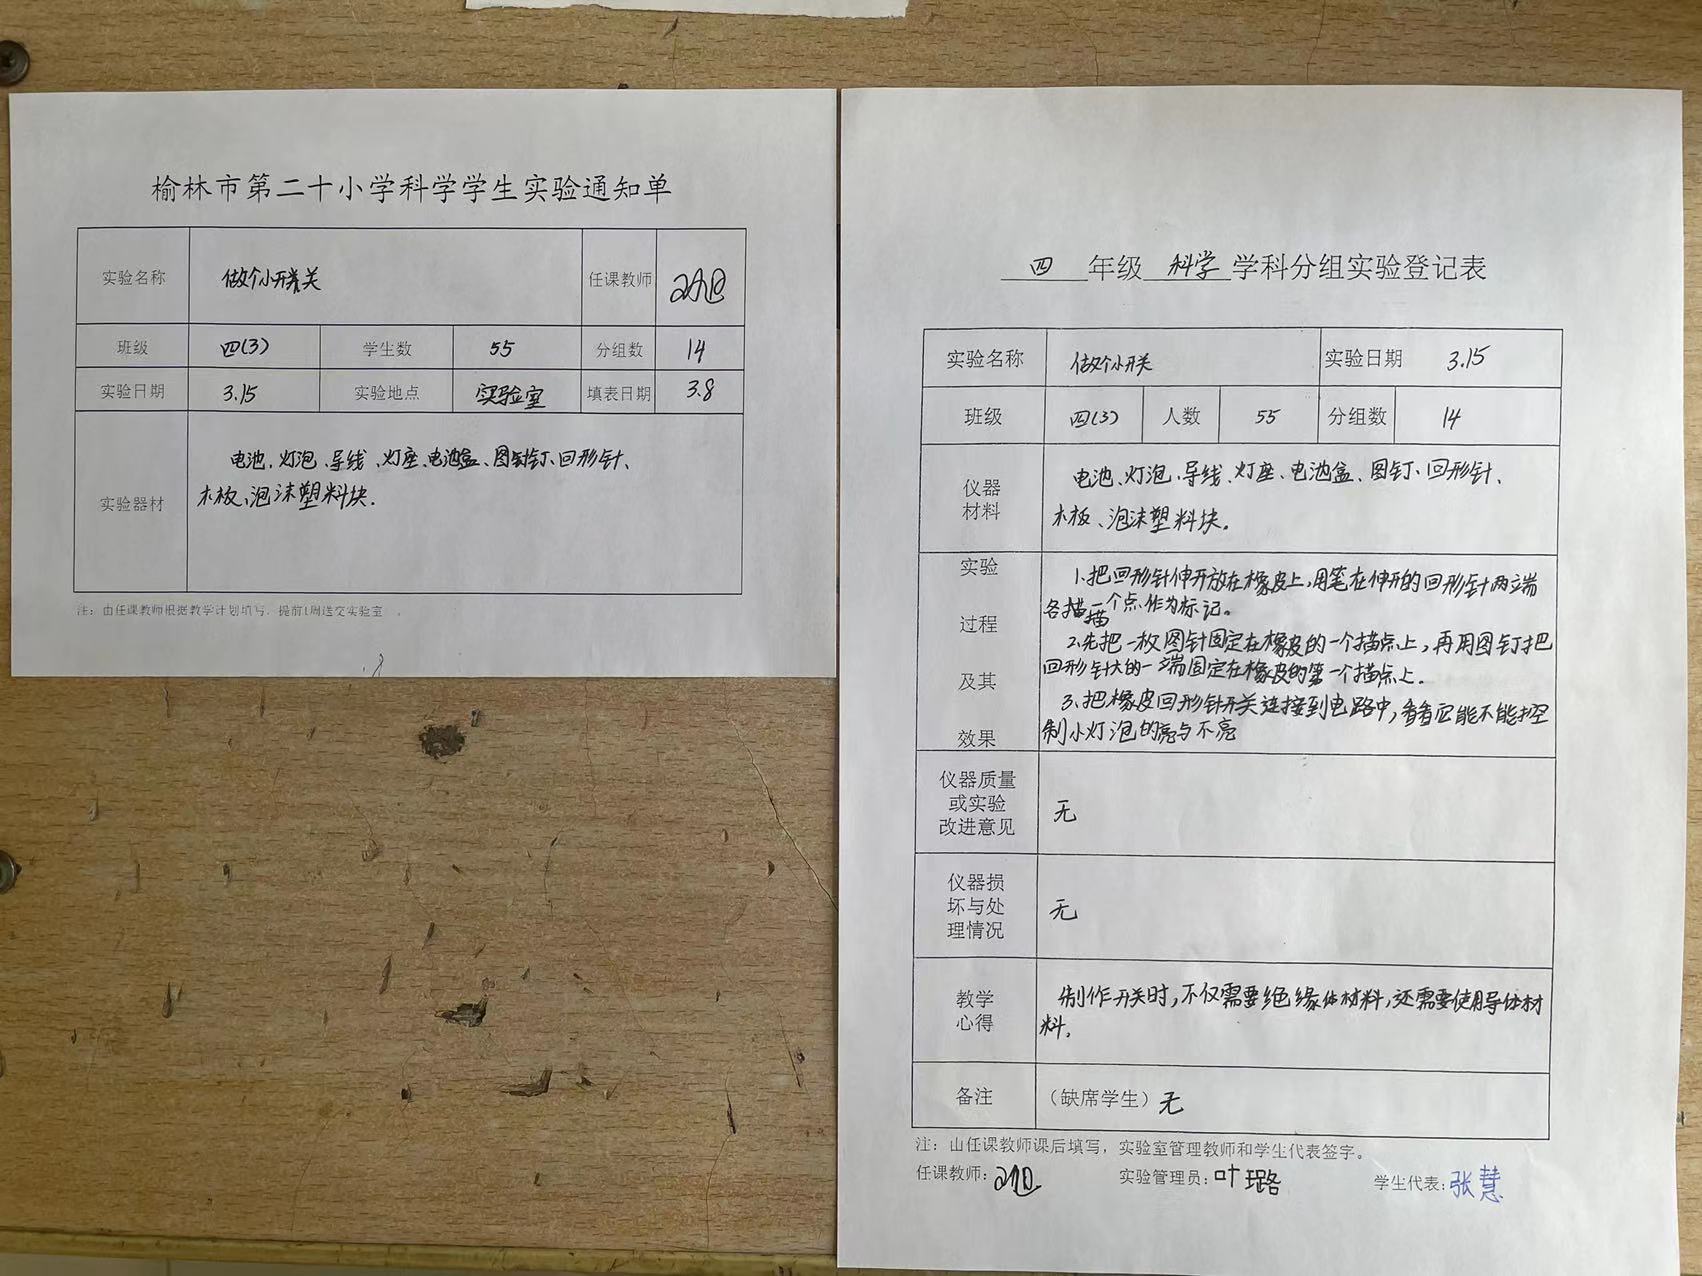 榆林市第二十小学科学学生实验通知单
实验名称 做个小开关 任课教师
班级 四(3) 学生数 55 分组数 14
实验日期 3.15 实验地点 实验室 填表日期 3.8
实验器材
电池、灯泡、导线、灯座、电池盒、图钉、回形针、
木板、泡沫塑料块.
注：由任课教师根据教学计划填写，提前1周送交实验室 。
四 年级 科学 学科分组实验登记表
实验名称 做个小开关 实验日期 3.15
班级 四(3) 人数 55 分组数 14
仪器
材料
电池、灯泡、导线、灯座、电池盒、图钉、回形针、
木板、泡沫塑料块。
实验
过程
及其
效果
1.把回形针伸开放在橡皮上,用笔在伸开的回形针两端
各描一个点作为标记。
描
2.先把一枚图针固定在橡皮的一个描点上,再用图钉把
回形针大的一端固定在橡皮的第一个描点上.
3.把橡皮回形针开关连接到电路中,看看它能不能控
制小灯泡的亮与不亮
仪器质量
或实验
改进意见
无
仪器损
坏与处
理情况
无
教学
心得
制作开关时,不仅需要绝缘体材料,还需要使用导体材
料.
备注 （缺席学生）无
注：由任课教师课后填写，实验室管理教师和学生代表签字。
任课教师: 实验管理员:叶璐 学生代表:张慧